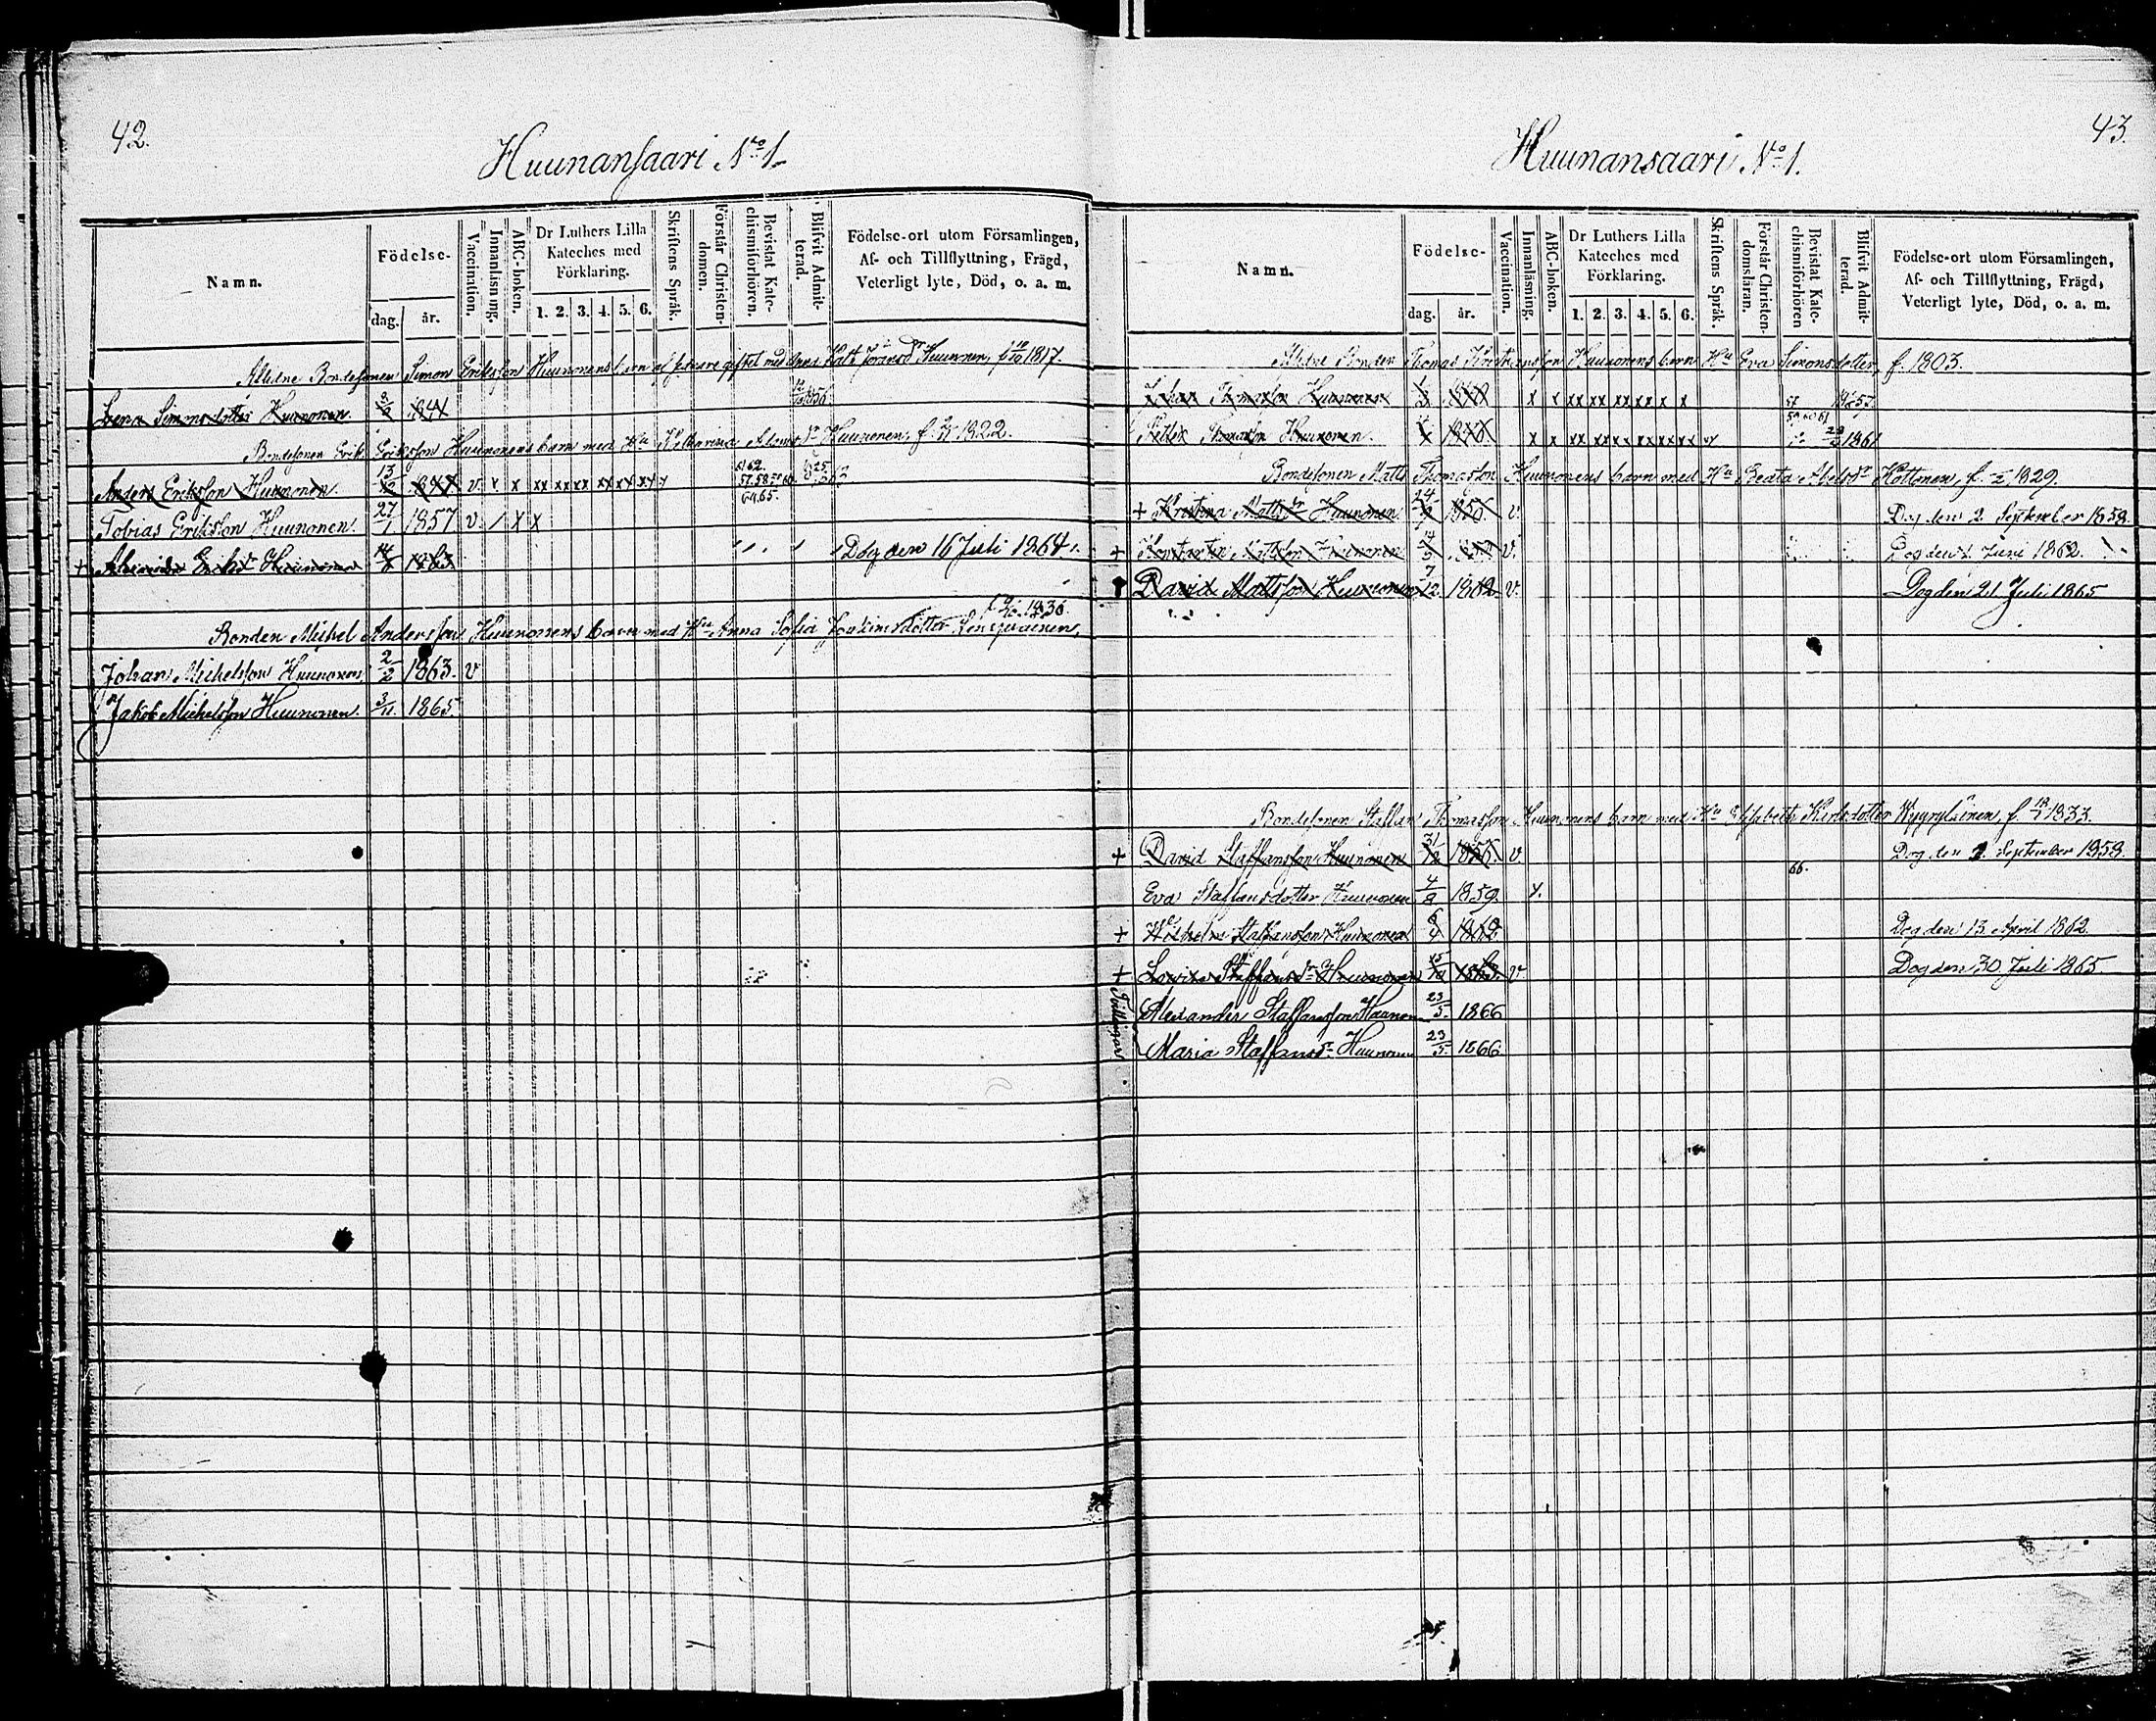 42.
Huunansaari No 1
Namn.
Födelse-
dag.
år.
Vaccination.
Innanläsning.
ABC-boken.
Dr Luthers Lilla
Kateches med
Förklaring.
1. 2. 3. 4. 5. 6.
Skriftens Språk.
Förstår Christen-
domen.
Bevistat Kate-
chismiförhören.
Blifvit Admit-
terad.
Födelse-ort utom Församlingen,
Af- och Tillflyttning, Frägd,
Veterligt lyte, Död, o. a. m.
Aflidne Bondesonen Simon Eriksson Huunonens barn af förra giftet med Anna Huunonen, 1817.
Lena Simonsdotter Huunonen. 1841
Bondesonen Erik Eriksson Huunonens barn med Hu Katharina Huunonen, f. 1822.
Anders Eriksson Huunonen. v. x x xx xx xx xx xx xx
Tobias Eriksson Huunonen. 27/1 1857 v. / x x
+ Eriksdr Huunonen 1863 Dog den 16 Juli 1864
f. 1836.
Bonden Michel Andersson Huunonens barn med Hu Anna Sofia Joakimsdotter
Johan Michelsson Huunonen 2/2 1863. v
Jakob Michelsson Huunonen. 3/11 1865.
43.
Huunansaari No 1.
Namn.
Födelse-
dag.
år.
Vaccination.
Innanläsning.
ABC-boken.
Dr Luthers Lilla
Kateches med
Förklaring.
1. 2. 3. 4. 5. 6.
Skriftens Språk.
Förstår Christen-
domsläran.
Bevistat Kate-
chismiförhören
Blifvit Admit-
terad.
Födelse-ort utom Församlingen,
Af- och Tillflyttning, Frägd,
Veterligt lyte, Död, o. a. m.
Aflidne Bonden Thomas Huunonens barn Hu Eva Simonsdotter, f. 1803.
Johan Thomasson Huunonen x x xx xx xx xx x x 57
Thomasson Huunonen x x xx xx xx xx xx xx 1861
Bondesonen Matts Thomasson Huunonens barn med Hu Beata Abelsdr Hottonen, f. 1829.
+ Kristina Mattsdr Huunonen 24 1856. v. Dog den 2 September 1858
+ Mattsson Huunonen v. Dog den Juni 1862.
David Mattsson Huunonen 7/12 1862 v. Dog den 21 Juli 1865
Bondesonen Staffan Thomasson Huunonens barn med Hu Elisabeth f. 1833.
+ David Staffansson Huunonen 31/12 1856. v Dog den 2. September 1858.
66.
Eva Staffansdotter Huunonen 4/8 1859. x.
+ Wilhelm Staffansson Huunonen 6/4 1862 Dog den 13 April 1862
+ Lovisa Staffansdr Huunonen 15/10 1863. v Dog den 30 Juli 1865
Tvillingar
Alexander Staffansson Huunonen 23/5. 1866
Maria Staffansdr Huunonen 23/5. 1866